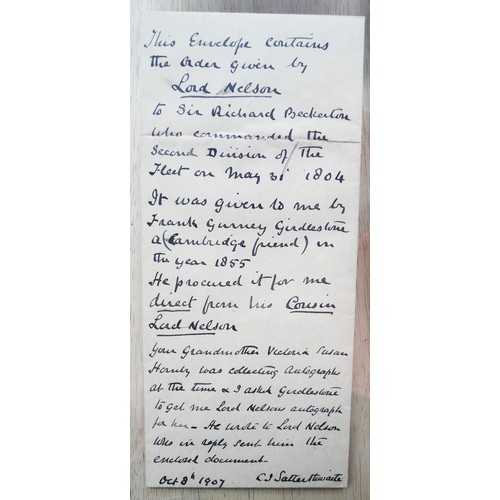 This Envelope contains
the order given by
Lord Nelson
to Sir Richard Beckerton
who commanded the
Second Division of the
Fleet on May 31 1804
It was given to me by
Frank Gurney Girdlestone
a (Cambridge friend) in
the year 1855
He procured it for me
direct from his Cousin
Lord Nelson
Your Grandmother Victoria Susan
Hornby was collecting Autograph
at the time & I asked Girdlestone
to get me Lord Nelsons autograph
for her - He wrote to Lord Nelson
who in reply sent him the
enclosed document -
Oct 8th 1907 C J Satterthwaite